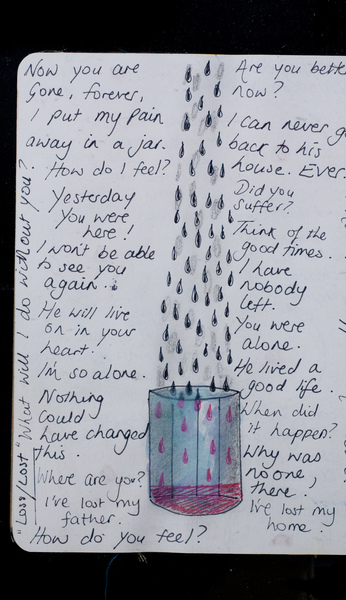 Now you are
Gone, forever,
I put my pain
away in a jar.
How do I feel?
Yesterday
You were
here!
I won't be able
to see you
again.
He will live
on in your
heart.
I'm so alone.
Nothing
could
have changed
this.
Where are you?
I've lost my
father.
How do you feel?
Are you bette
now?
I can never go
back to his
house. Ever.
Did you
suffer?
Think of the
good times.
I have
nobody
left.
You were
alone.
He lived a
good life.
When did
it happen?
Why was
no one
there,
I've lost my
home.
"Loss/Lost" What will I do without you?